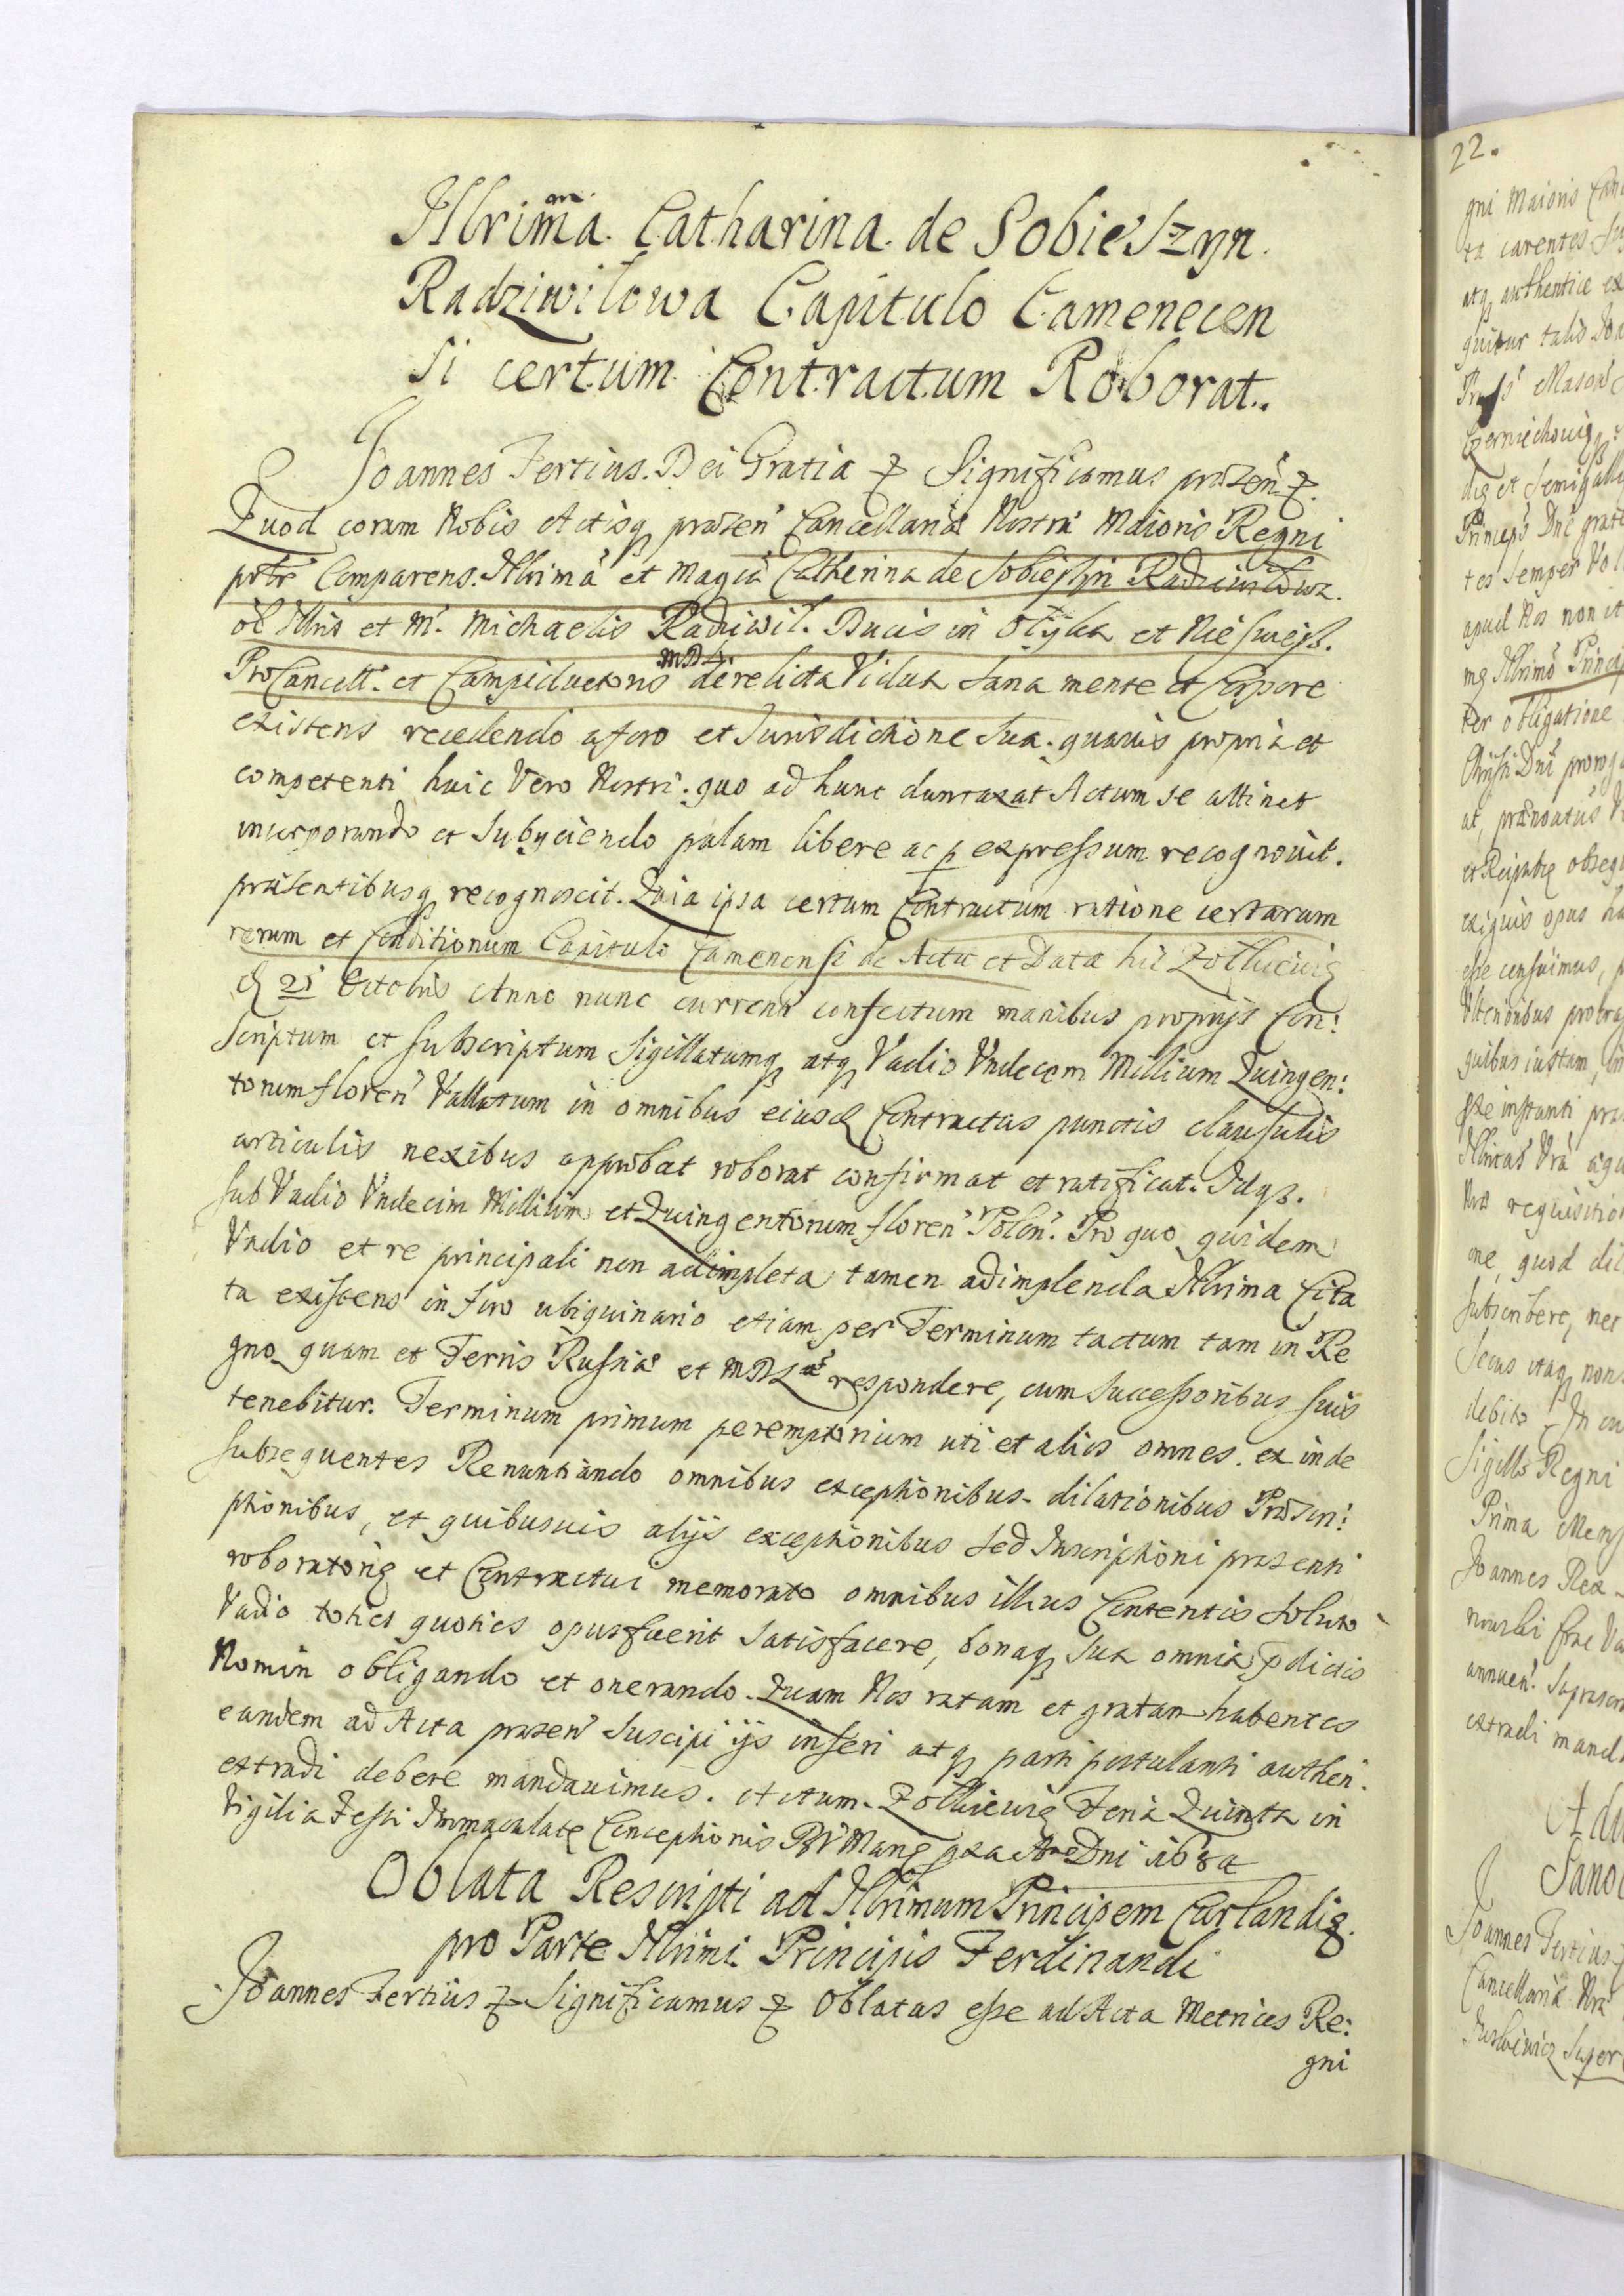 Illrima Catharina de Sobieszyn
Radziwilowa Capitulo Camenecen
si certum Contractum Roborat.
Joannes Tertius. Dei Gratia & Significamus præsen &.
Quod coram Nobis Actisq præsen Cancellariæ Nostræ Maioris Regni
pntr Comparens. Illrima et Magca Catherina de Sobieszyn Radziwilowa.
ol Illris et M. Michaelis Radziwil. Ducis in Olyka et Nieswiesz.
ProCancell. et Campiductoris MDL. derelicta Vidua sana mente et Corpore
existens recedendo a foro et Jurisdictione sua. quauis propria et
competenti huic Vero Nostri. quo ad hunc duntaxat Actum se attinet
incorporando et Subyciendo palam libere ac p expressum recognouit.
præsentibusq recognoscit. Quia ipsa certum Contractum ratione certarum
rerum et Conditionum Capitulo Camenensi de Actu et Data hic Zolkieuiæ
d 21 Octobris Anno nunc curren confectum manibus proprijs Con:
scriptum et subscriptum Sigillatumq atq Vadio Vndecem Millium Quingen:
torum floren Vallatum in omnibus eiusd Contractus punctis clausulis
articulis nexibus approbat roborat confirmat et ratificat. Idqz.
sub Vadio Vndecim Millium et Quingentorum floren Polon. Pro quo quidem
Vadio et re principali non adimpleta tamen adimplenda Illrima Cita
ta existens in foro ubiquinario etiam per Terminum tactum tam in Re
gno quam et Terris Russiæ et MDLæ respondere, cum Successoribus suis
tenebitur. Terminum primum peremptorium uti et alios omnes. ex inde
subsequentes Renuntiando omnibus exceptionibus. dilationibus Præscri:
ptionibus, et quibusuis alijs exceptionibus sed Inscriptioni præsenti
roboratoriæ et Contractui memorato omnibus illius Contentis soluto
Vadio toties quoties opus fuerit satisfacere, bonaq sua omnia p dictis
Nomin obligando et onerando. Quam Nos ratam et gratam habentes
eandem ad Acta præsen Suscipi ijs inseri atq parti postulanti authen.
extradi debere mandauimus. Actum. Zolkieuiæ Feria Quinta in
Vigilia Festi Immaculatæ Conceptionis BV Mariæ Ano Dni 1684
Oblata Rescripti ad Illrimum Principem Curlandiæ.
pro Parte Illrimi Principis Ferdinandi
Joannes Tertius & Significamus & Oblatas esse ad Acta Metrices Re:
gni
22.
gni Maioris
ta carentes
atq authentice
quitur talis
Czerniechouiæ
diæ et Semigalli
Princeps Dne
tes semper
apud Nos non
Illrimo
ter obligatione
Christi Dni
at, prænoatus
et Reipublicæ
exiguis opus
esse censuimus,
quibus iustam,
instanti
requisitio
ne, quod
subscribere, nec
Secus itaq non
debito. In
Sigillo Regni
Prima Mens
Joannes Rex
extradi mand
Joannes Tertius
Cancellariæ
super